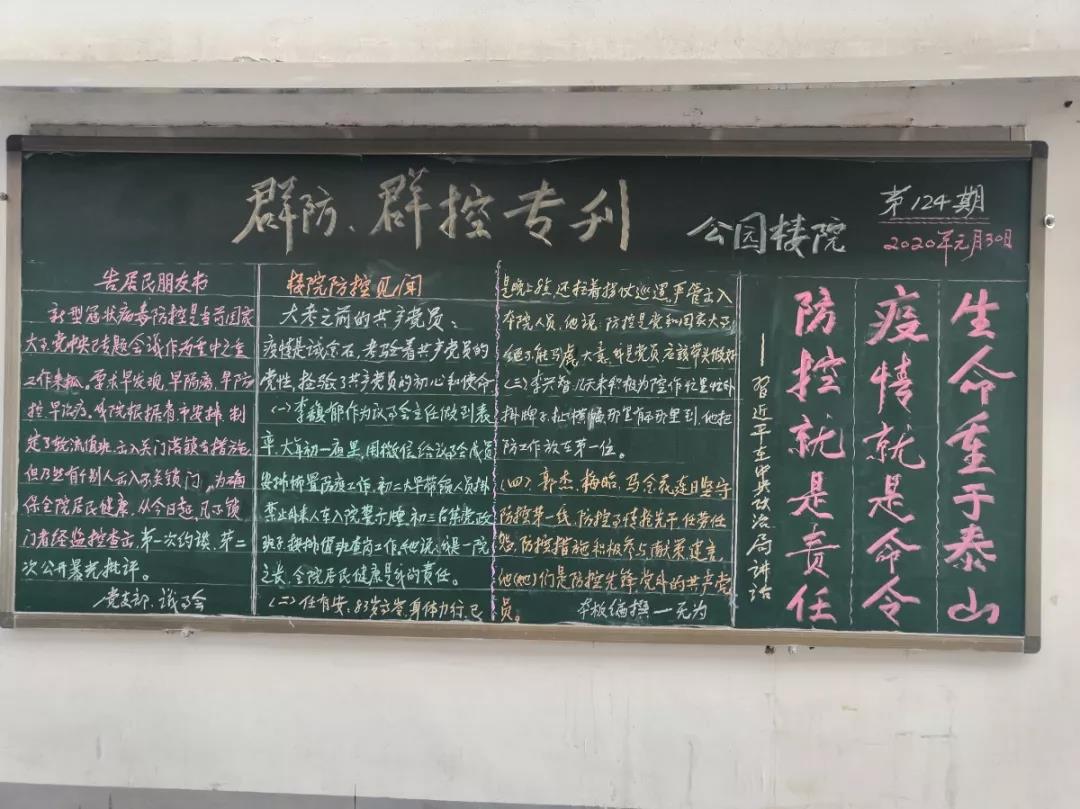 群防、群控专刊
公园楼院
第124期
2020年元月30日
告居民朋友书
新型冠状病毒防控是当前国家
大事,党中央已专题会议作为重中之重
工作来抓。要求早发现,早隔离,早防
控,早治疗。我院根据省市安排,制
定了轮流值班、出入关门落锁等措施,
但仍然有个别人出入不关锁门,为确
保全院居民健康,从今日起,凡不锁
门者经监控查出,第一次约谈,第二
次公开曝光批评。
党支部、议事会
楼院防控见闻
大考之前的共产党员:
疫情是试金石,考验着共产党员的
党性,检验了共产党员的初心和使命
(一)李馥郁作为议事会主任做到表
率,大年初一夜里,用微信给议事会成员
安排布置防疫工作,初二大早带领人员挂
禁止外来人车入院警示牌,初三召集党政
班子安排值班查岗工作,他说:我是一院
之长,全院居民健康是我的责任。
(二)任有安,83岁高龄身体力行,已
是晚上8点,还拄着拐仗巡逻,严管出入
本院人员,他说:防控是党和国家大事,
绝不能马虎、大意,我是党员应该带头做好
(三)李兴智,几天来积极为防控作忙里忙外
挂牌子,扯横幅那里有事那里到,他把
防工作放在第一位。
(四)郭杰、梅皓、马金花连日坚守
防控第一线,防控事情抢先干任劳任
怨,防控措施积极参与献策建言,
他(她)们是防控先锋,党外的共产党
员。
本板编撰一无为
生命重于泰山
疫情就是命令
防控就是责任
——习近平在中央政治局讲话